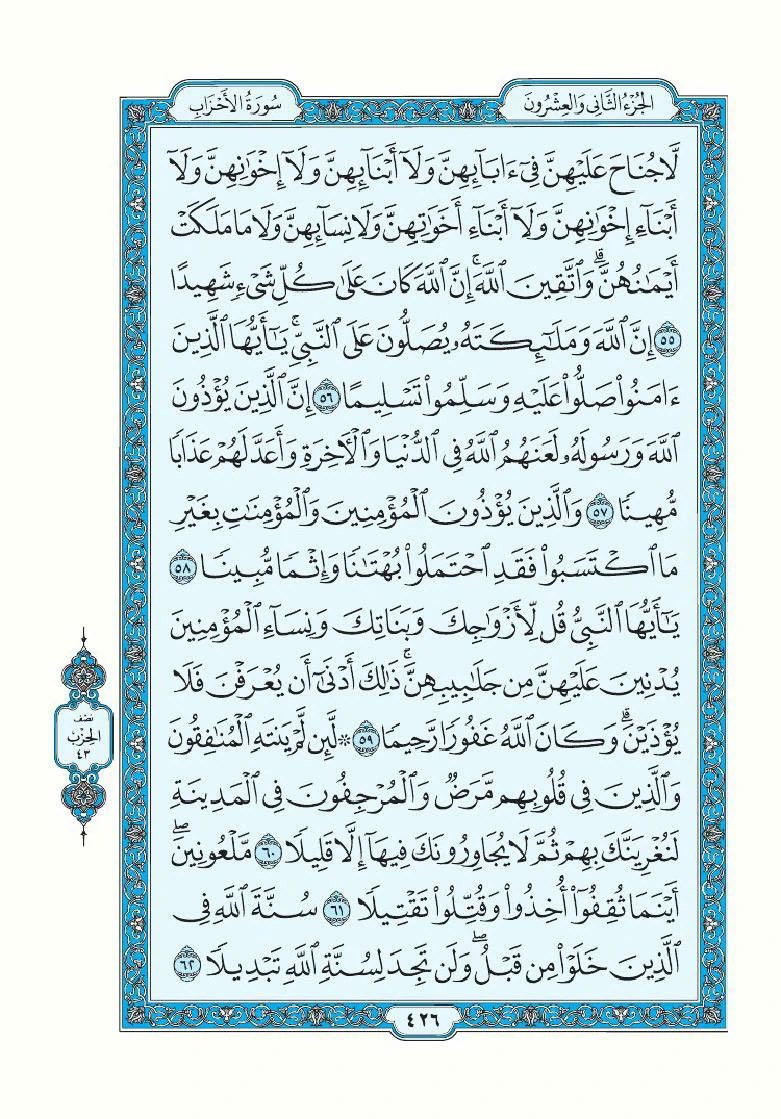 الجُزْءُ الثَّانِي وَالعِشْرُونَ
سُورَةُ الأَحْزَابِ
لَّا جُنَاحَ عَلَيْهِنَّ فِىٓ ءَابَآئِهِنَّ وَلَآ أَبْنَآئِهِنَّ وَلَآ إِخْوَٰنِهِنَّ وَلَآ
أَبْنَآءِ إِخْوَٰنِهِنَّ وَلَآ أَبْنَآءِ أَخَوَٰتِهِنَّ وَلَا نِسَآئِهِنَّ وَلَا مَا مَلَكَتْ
أَيْمَٰنُهُنَّ ۗ وَٱتَّقِينَ ٱللَّهَ ۚ إِنَّ ٱللَّهَ كَانَ عَلَىٰ كُلِّ شَىْءٍ شَهِيدًا
٥٥ إِنَّ ٱللَّهَ وَمَلَٰٓئِكَتَهُۥ يُصَلُّونَ عَلَى ٱلنَّبِىِّ ۚ يَٰٓأَيُّهَا ٱلَّذِينَ
ءَامَنُوا۟ صَلُّوا۟ عَلَيْهِ وَسَلِّمُوا۟ تَسْلِيمًا ٥٦ إِنَّ ٱلَّذِينَ يُؤْذُونَ
ٱللَّهَ وَرَسُولَهُۥ لَعَنَهُمُ ٱللَّهُ فِى ٱلدُّنْيَا وَٱلْءَاخِرَةِ وَأَعَدَّ لَهُمْ عَذَابًا
مُّهِينًا ٥٧ وَٱلَّذِينَ يُؤْذُونَ ٱلْمُؤْمِنِينَ وَٱلْمُؤْمِنَٰتِ بِغَيْرِ
مَا ٱكْتَسَبُوا۟ فَقَدِ ٱحْتَمَلُوا۟ بُهْتَٰنًا وَإِثْمًا مُّبِينًا ٥٨
يَٰٓأَيُّهَا ٱلنَّبِىُّ قُل لِّأَزْوَٰجِكَ وَبَنَاتِكَ وَنِسَآءِ ٱلْمُؤْمِنِينَ
يُدْنِينَ عَلَيْهِنَّ مِن جَلَٰبِيبِهِنَّ ۚ ذَٰلِكَ أَدْنَىٰٓ أَن يُعْرَفْنَ فَلَا
يُؤْذَيْنَ ۗ وَكَانَ ٱللَّهُ غَفُورًا رَّحِيمًا ٥٩ ۞ لَّئِن لَّمْ يَنتَهِ ٱلْمُنَٰفِقُونَ
وَٱلَّذِينَ فِى قُلُوبِهِم مَّرَضٌ وَٱلْمُرْجِفُونَ فِى ٱلْمَدِينَةِ
لَنُغْرِيَنَّكَ بِهِمْ ثُمَّ لَا يُجَاوِرُونَكَ فِيهَآ إِلَّا قَلِيلًا ٦٠ مَّلْعُونِينَ ۖ
أَيْنَمَا ثُقِفُوٓا۟ أُخِذُوا۟ وَقُتِّلُوا۟ تَقْتِيلًا ٦١ سُنَّةَ ٱللَّهِ فِى
ٱلَّذِينَ خَلَوْا۟ مِن قَبْلُ ۖ وَلَن تَجِدَ لِسُنَّةِ ٱللَّهِ تَبْدِيلًا ٦٢
نصف
الحزب
٤٣
٤٢٦